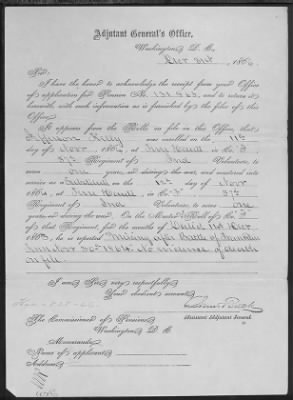 Adjutant General's Office,
Washington, D. C.,
Decr 31st, 1866
Sir:
I have the honor to acknowledge the receipt from your Office
of application for Pension No. 131.965, and to return it
herewith, with such information as is furnished by the files of this
Office.
It appears from the Rolls on file in this Office, that
was enrolled on the 11th
day of Novr, 1864, at Terre Haute in Co.
Regiment of Ind Volunteers, to serve
one years, or during the war, and mustered into
service as a on the day of Novr
1864, at Terre Haute, in Co.
Regiment of Ind Volunteers, to serve one
years, or during the war. On the Muster Roll of Co.
of that Regiment, for the months of
he is reported Missing after Battle of Franklin
Tenn Nov 30th 1864. No evidence of death
on file.
I am, Sir, very respectfully,
Your obedient servant,
Assistant Adjutant General.
The Commissioner of Pensions,
Washington, D. C.
Memoranda:
Name of applicant,
Address,